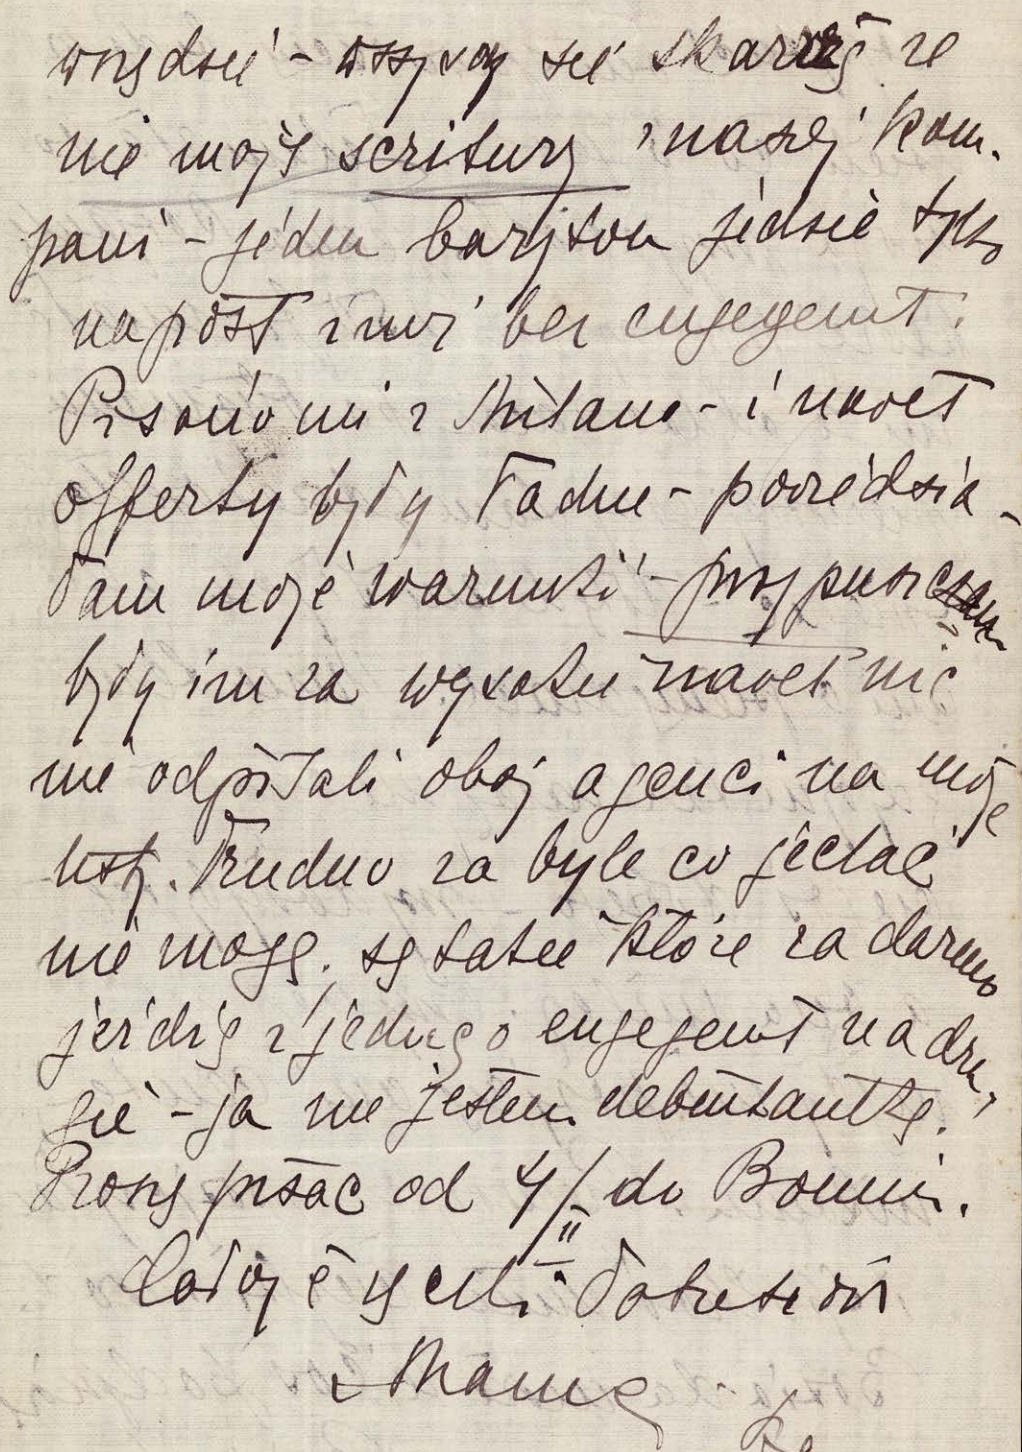 wszędzie - wszyscy się skarżą że
nie mają scritury z naszej kom-
pani - jeden baryton jedzie tylko
na post inni bez engegemt.
Pisano mi z Milano - i nawet
offerty były ładne - powiedzia-
łam moje warunki - przypuszczam
były im za wysokie nawet nic
nie odpisali oboj agenci na moje
listy. Trudno za byle co jechać
nie mogę. są takie które za darmo
jeżdżą z jednego engegemt na dru-
gie - ja nie jestem debiutantką.
Proszę pisać od 4/II do
Całuję
Mamę